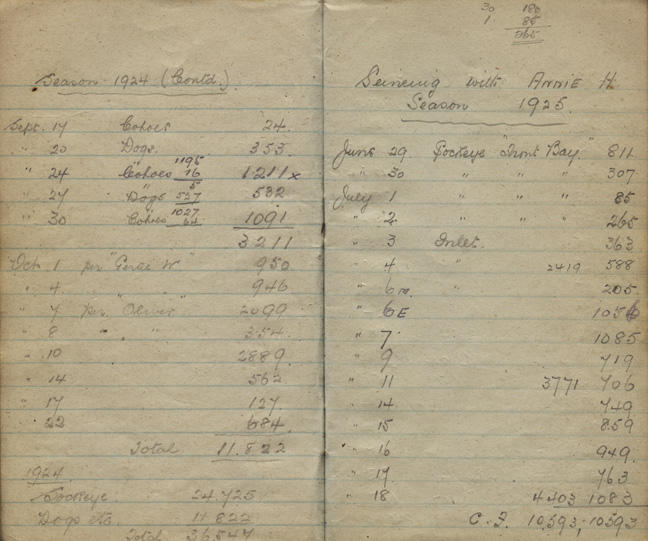 Season 1924 (Contd.)
Sept. 17 Cohoes 24.
" 20 Dogs. 353.
1195
" 24 Cohoes 16 1211x
5
" 27 Dogs 527 532
1027
" 30 Cohoes 64 1091
3211
Oct. 1 per " W" 950
" 4 " " 946
" 7 per "Oliver" 2099
" 8 " " 354.
" 10 2889.
" 14 562
" 17 127
" 22 684.
Total 11.822
1924.
Sockeye. 24.725
Dogs etc. 11822
Total 36547
30 180
1 85
265
Seining with ANNIE H.
Season 1925.
June 29 Sockeye "Front Bay" 811
" 30 " " " 307
July 1 " " " 85
" 2 " " " 265
" 3 Inlet. 363
" 4 " 2419 588
" 6 m. " 205
" 6E 1056
" 7 1085
" 9 719
" 11 3771 706
" 14 749
" 15 859
" 16 949.
" 17 763
" 18 4403 1083
C. F. 10.593. 10593